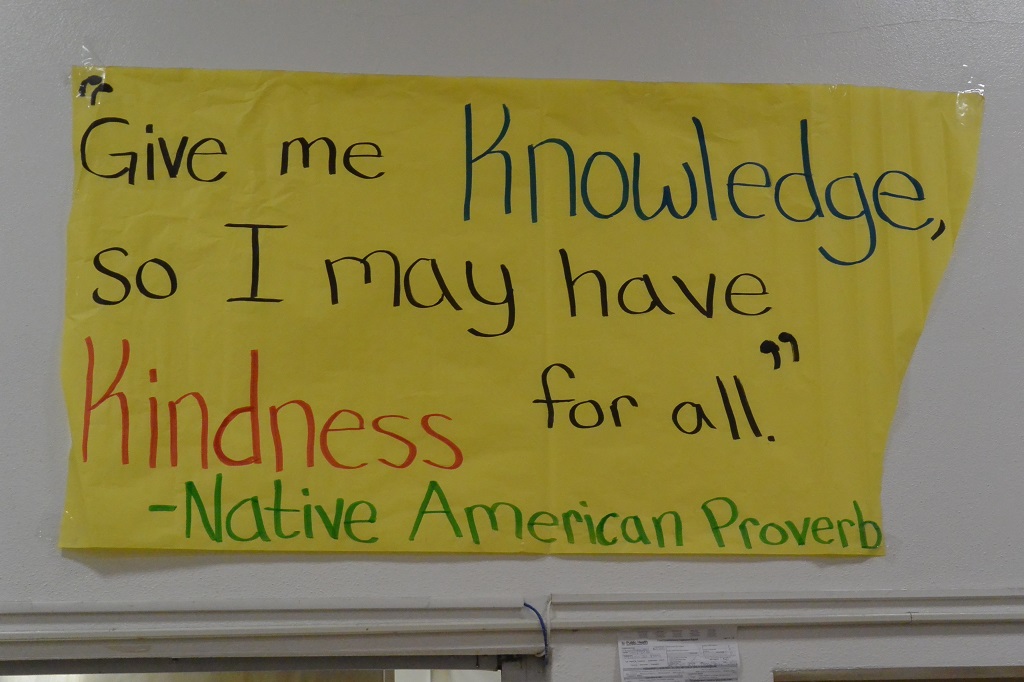 "Give me Knowledge,
so I may have
Kindness for all."
-Native American Proverb